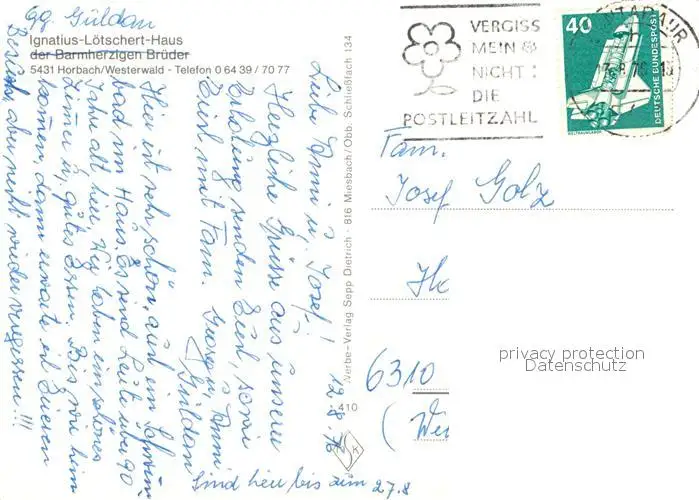 gg. Güldan
Ignatius-Lötschert-Haus
der Barmherzigen Brüder
5431 Horbach/Westerwald - Telefon 0 64 39 / 70 77
12.8.76
Liebe Anni u. Josef!
Herzliche Grüsse aus unserer
Erholung senden Euch, sowie
Eierl mit Fam.
Georg u. Anni
Güldan
Hier ist sehr schön, auch ein Schwimm-
bad im Haus. Es sind Leute über 90
Jahre alt hier, wir haben ein schönes
Zimmer u. gutes Essen. Bis wir heim
kommen, dann erwarte ich Eueren
Besuch, aber nicht wieder vergessen!!!
Sind hier bis zum 27.8
Werbe-Verlag Sepp Dietrich · 816 Miesbach/Obb. Schließfach 134
410
SK
VERGISS
MEIN
NICHT:
DIE
POSTLEITZAHL
40
DEUTSCHE BUNDESPOST
WELTRAUMLABOR
Fam.
Josef Golz
6310
privacy protection
Datenschutz